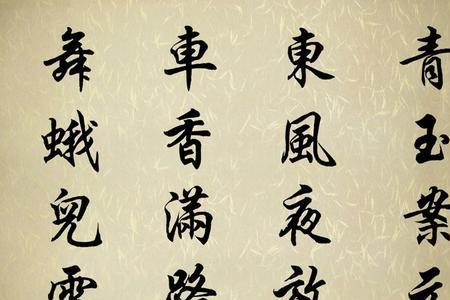 青玉案元
東風夜放
車香滿路
舞蛾兒雪